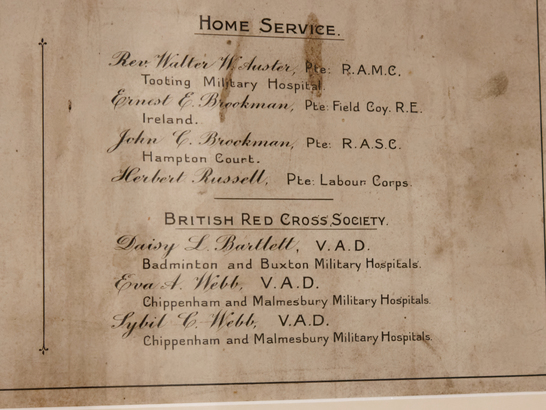 HOME SERVICE.
Rev. Walter W. Auster, Pte: R.A.M.C.
Tooting Military Hospital.
Ernest E. Brookman, Pte: Field Coy. R.E.
Ireland.
John C. Brookman, Pte: R.A.S.C.
Hampton Court.
Herbert Russell, Pte: Labour Corps.
BRITISH RED CROSS SOCIETY.
Daisy L. Bartlett, V.A.D.
Badminton and Buxton Military Hospitals.
Eva A. Webb, V.A.D.
Chippenham and Malmesbury Military Hospitals.
Sybil C. Webb, V.A.D.
Chippenham and Malmesbury Military Hospitals.